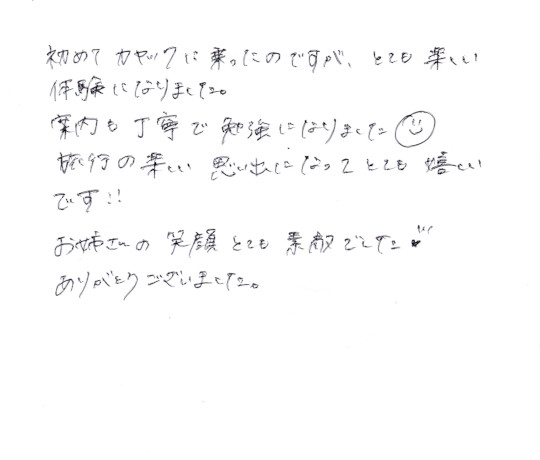 初めてカヤックに乗ったのですが、とても楽しい
体験になりました。
案内も丁寧で勉強になりました☺
旅行の楽しい思い出になってとても嬉しい
です!!
お姉さんの笑顔とても素敵でした♥
ありがとうございました。